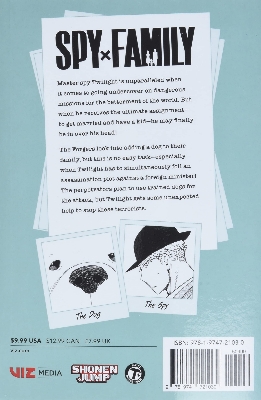 SPY×FAMILY
Master spy Twilight is unparalleled when
it comes to going undercover on dangerous
missions for the betterment of the world. But
when he receives the ultimate assignment—
to get married and have a kid—he may finally
be in over his head!
The Forgers look into adding a dog to their
family, but this is no easy task—especially
when Twilight has to simultaneously foil an
assassination plot against a foreign minister!
The perpetrators plan to use trained dogs for
the attack, but Twilight gets some unexpected
help to stop these terrorists.
The Dog
The Spy
$9.99 USA $12.99 CAN £7.99 UK
ISBN: 978-1-9747-2103-0
VIZ MEDIA
SHONEN
JUMP
T